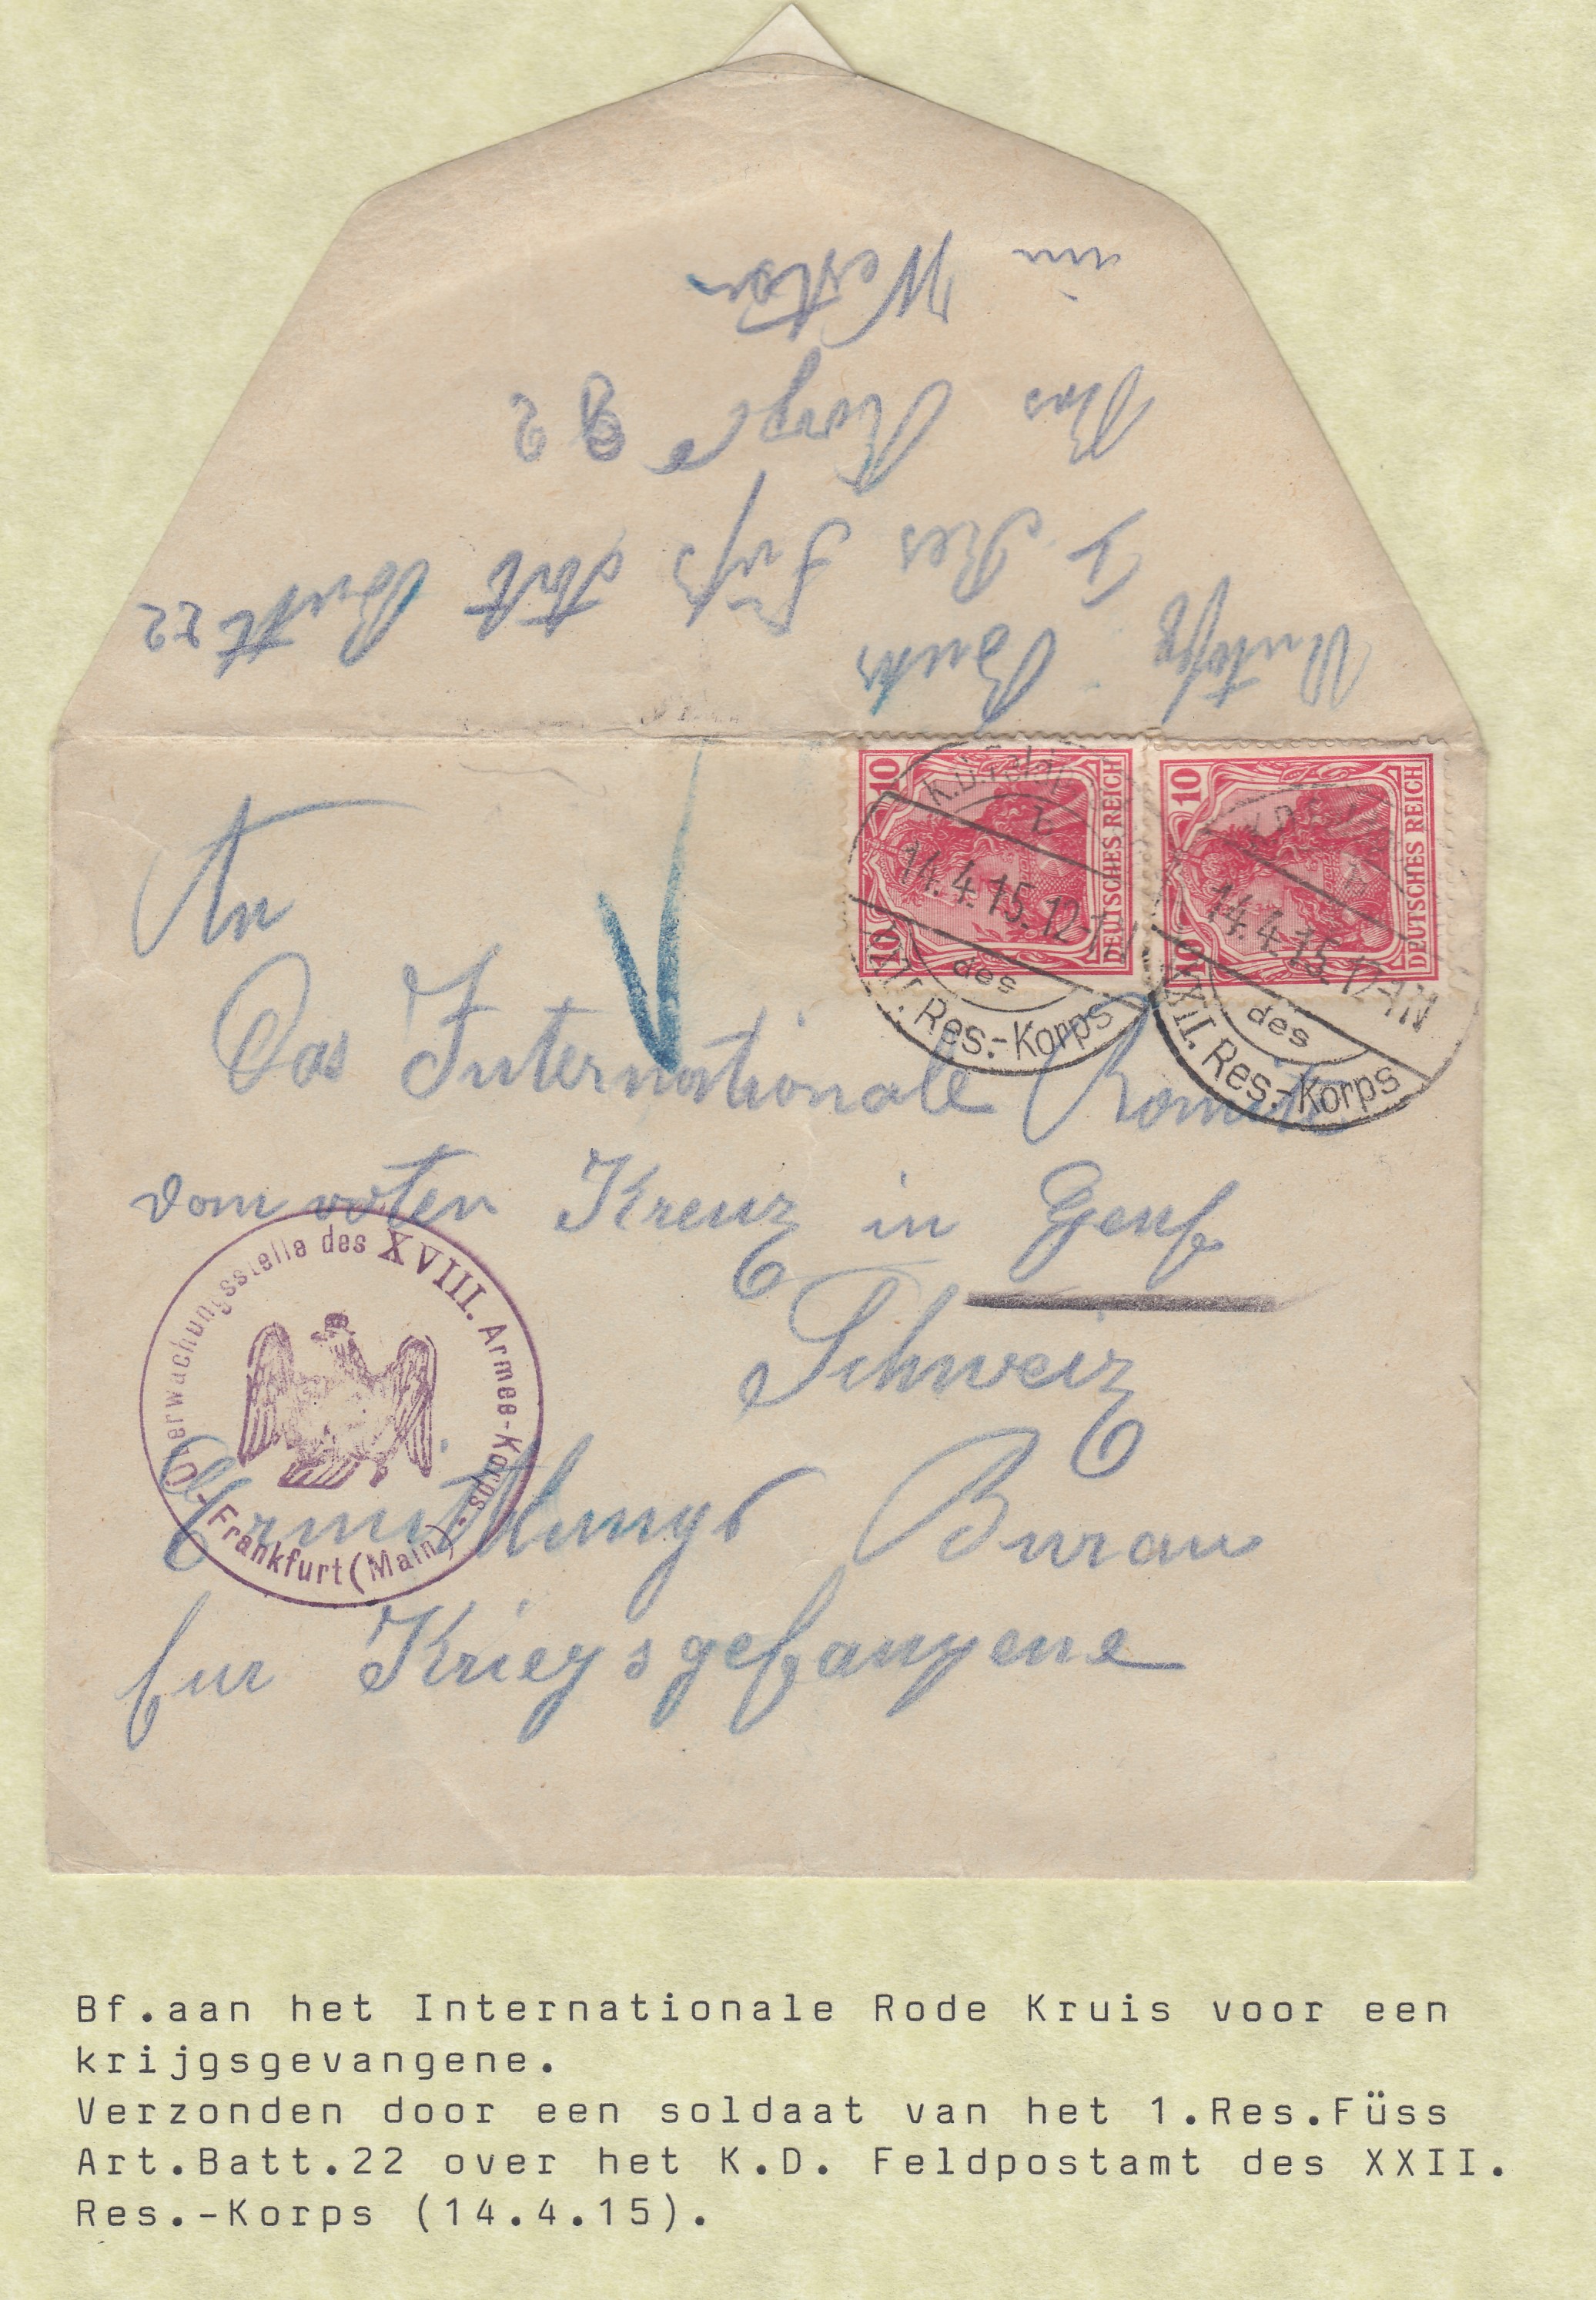 im Westen
Res Korps 22
I Res Fuß Art Batt 22
10 DEUTSCHES REICH 10
10 DEUTSCHES REICH 10
14.4.15.12-1N
des
XXII. Res.-Korps
14.4.15.12-1N
des
XXII. Res.-Korps
An
Das Internationale Komite
vom roten Kreuz in Genf
Schweiz
Ermittlungs Burau
fur Kriegsgefangene
Überwachungsstelle des XVIII. Armee-Korps.
- Frankfurt (Main) -
Bf.aan het Internationale Rode Kruis voor een
krijgsgevangene.
Verzonden door een soldaat van het 1.Res.Füss
Art.Batt.22 over het K.D. Feldpostamt des XXII.
Res.-Korps (14.4.15).